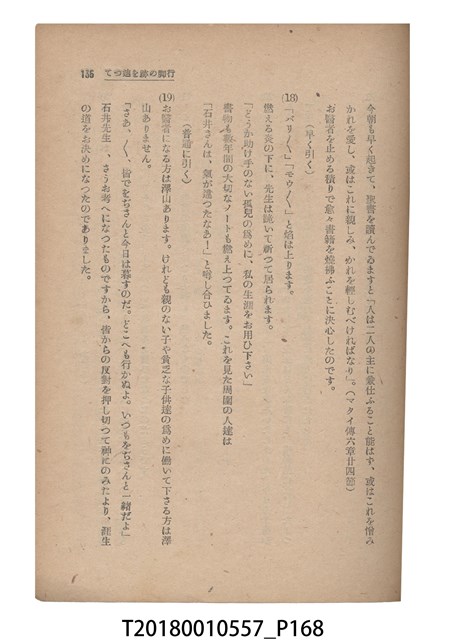 行脚の跡を辿つて
135
今朝も早く起きて、聖書を讀んでゐますと「人は二人の主に兼仕ふること能はず、或はこれを憎み
かれを愛し、或はこれに親しみ、かれを輕しむべければなり」。(マタイ傳六章廿四節)
お醫者を止める積りで愈々書籍を燒拂ふことに決心したのです。
(早く引く)
(18)
「バリ〱」「モウ〱」と焰は上ります。
燃える炎の下に、先生は跪いて祈つて居られます。
「どうか助け手のない孤兒の爲めに、私の生涯をお用ひ下さい」
書物も數年間の大切なノートも燃え上つてゐます。これを見た周圍の人達は
「石井さんは、氣が違つたなあ!」と囁し合ひました。
(普通に引く)
(19)
お醫者になる方は澤山あります。けれども親のない子や貧乏な子供達の爲めに働いて下さる方は澤
山ありません。
「さあ、〱、皆でをぢさんと今日は暮すのだ。どこへも行かぬよ。いつもをぢさんと一緒だよ」
石井先生は、さうお考へになつたものですから、皆からの反對を押し切つて神にのみたより、涯生
の道をお決めになつたのでありました。
T20180010557_P168